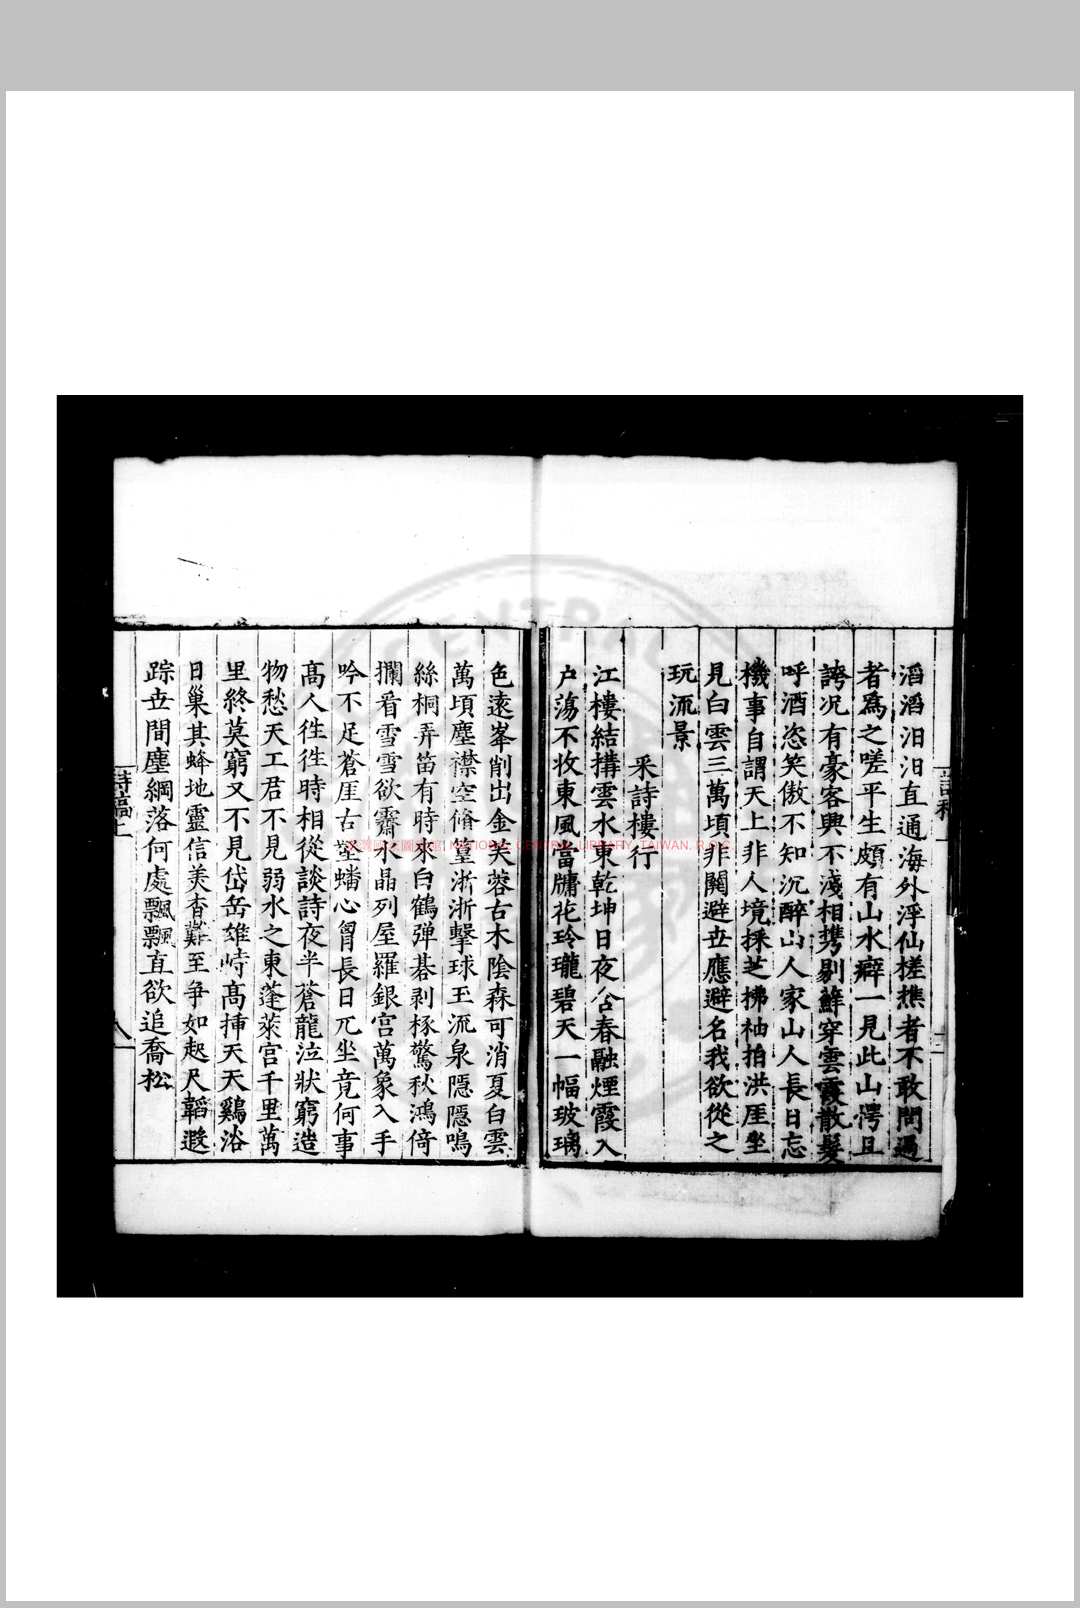 滔滔汨汨直通海外浮仙槎樵者不敢問過
者爲之嗟平生頗有山水癖一見此山愕且
誇况有豪客興不淺相携剔蘚穿雲霞散髮
呼酒恣笑傲不知沉醉山人家山人長日忘
機事自謂天上非人境採芝拂袖拍洪厓坐
見白雲三萬頃非關避世應避名我欲從之
玩流景
采詩樓行
江樓結搆雲水東乾坤日夜含春融煙霞入
户蕩不收東風當牖花玲瓏碧天一幅玻璃
色遠峯削出金芙蓉古木陰森可消夏白雲
萬頃塵襟空脩篁浙浙擊球玉流泉隱隱鳴
絲桐弄笛有時來白鶴弹棊剥椓驚秋鴻倚
攔看雪雪欲霽水晶列屋羅銀宫萬象入手
吟不足蒼厓右壁蟠心胷長日兀坐竟何事
髙人徃徃時相從談詩夜半蒼龍泣狀窮造
物愁天工君不見弱水之東蓬萊宫千里萬
里終莫窮又不見岱岳雄峙髙揷天天鷄浴
日巢其蜂地靈信美杳難至争如咫尺韜遐
踪世間塵網落何處飄飄直欲追喬松
詩稿上
八
NATIONAL CENTRAL LIBRARY, TAIWAN, R.O.C.